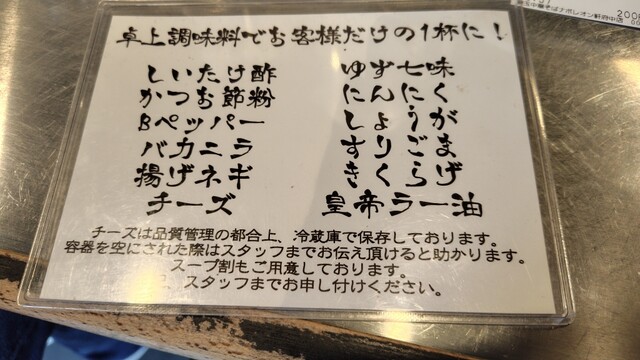 卓上調味料でお客様だけの1杯に!
しいたけ酢 ゆず七味
かつお節粉 にんにく
Bペッパー しょうが
バカニラ すりごま
揚げネギ きくらげ
チーズ 皇帝ラー油
チーズは品質管理の都合上、冷蔵庫で保存しております。
容器を空にされた際はスタッフまでお伝え頂けると助かります。
スープ割もご用意しております。
、スタッフまでお申し付けください。
200